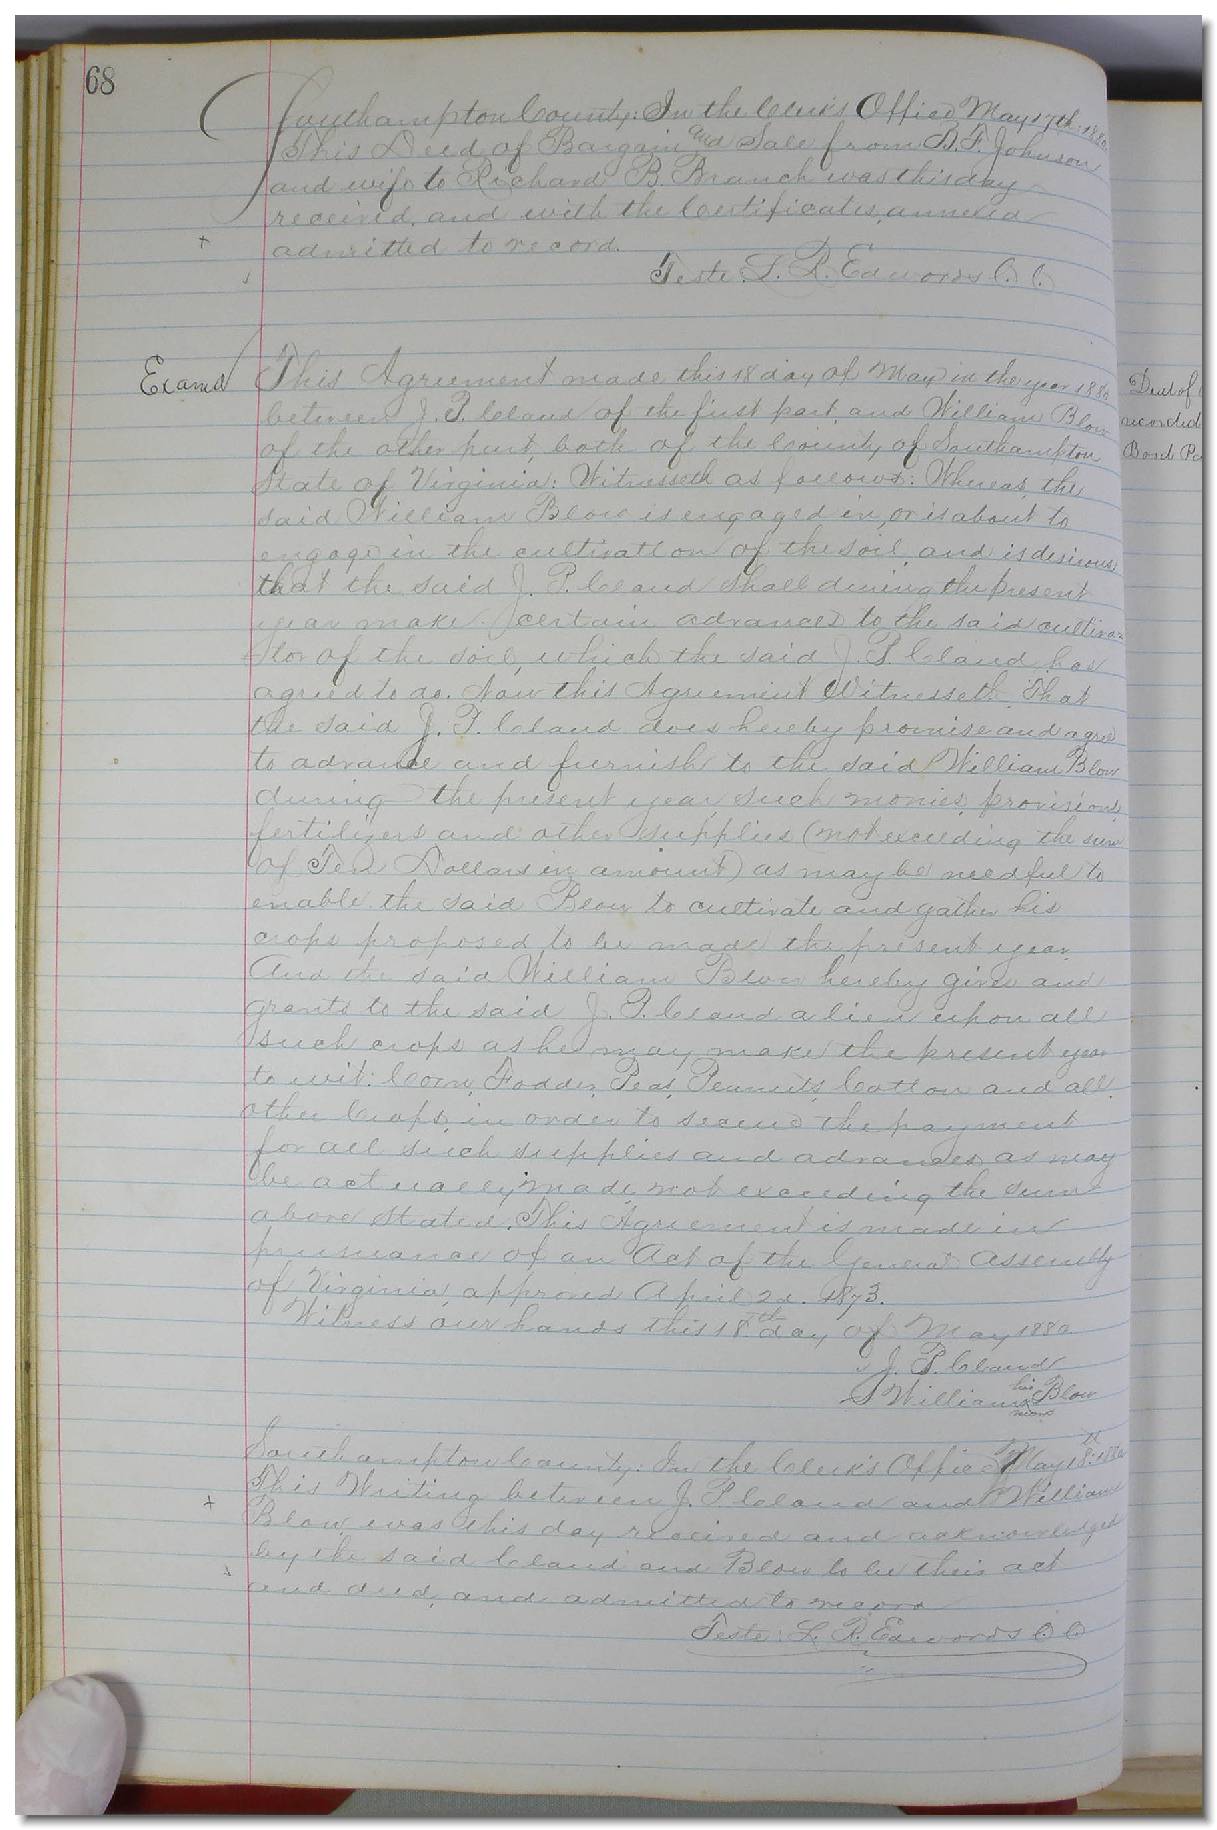 68
Southampton County: In the Clerk's Office May 17th 1880
This Deed of Bargain and Sale from B. F. Johnson
and wife to Richard B. Branch was this day
received, and with the Certificates, annexed
admitted to record.
Teste L. R. Edwards C. C.
Examd
This Agreement made this 18 day of May in the year 1880
between J. P. Cland of the first part and William Blow
of the other part, both of the County of Southampton
State of Virginia: Witnesseth as follows: Whereas, the
said William Blow is engaged in, or is about to
engage in the cultivation of the soil, and is desirous
that the said J. P. Cland shall during the present
year make certain advances to the said cultiva-
tor of the soil, which the said J. P. Cland has
agreed to do. Now this Agreement Witnesseth That
the said J. P. Cland does hereby promise and agree
to advance and furnish to the said William Blow
during the present year, such monies, provisions,
fertilizers and other supplies (not exceeding the sum
of Ten Dollars in amount) as may be needful to
enable the said Blow to cultivate and gather his
crops proposed to be made the present year.
And the said William Blow hereby gives and
grants to the said J. P. Cland a lien upon all
such crops as he may make the present year
to wit: Corn, Fodder, Peas, Peanuts, Cotton and all
other Crops, in order to secure the payment
for all such supplies and advances as may
be actually made, not exceeding the sum
above stated. This Agreement is made in
pursuance of an Act of the General Assembly
of Virginia, approved April 2d. 1873.
Witness our hands this 18th day of May 1880
J. P. Cland
William his Blow
mark
Southampton County: In the Clerk's Office May 18th 1880
This Writing between J. P. Cland and William
Blow was this day received and acknowledged
by the said Cland and Blow to be their act
and deed, and admitted to record
Teste: L. R. Edwards C. C.
Deed of
recorded
Bond